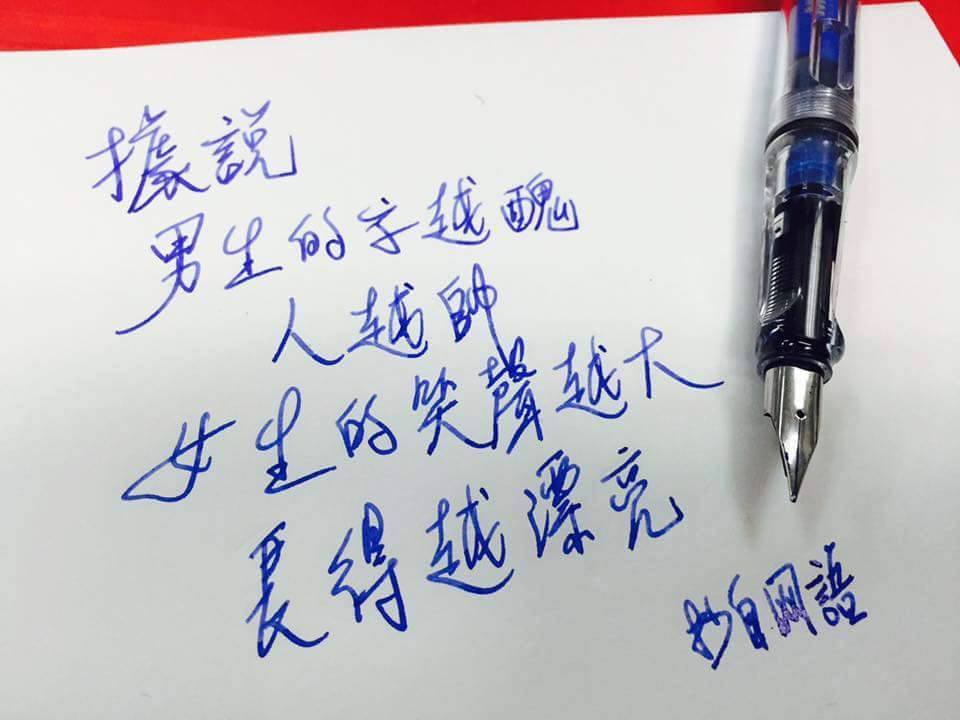 據説
男生的字越醜
人越帥
女生的笑聲越大
長得越漂亮
抄自网語